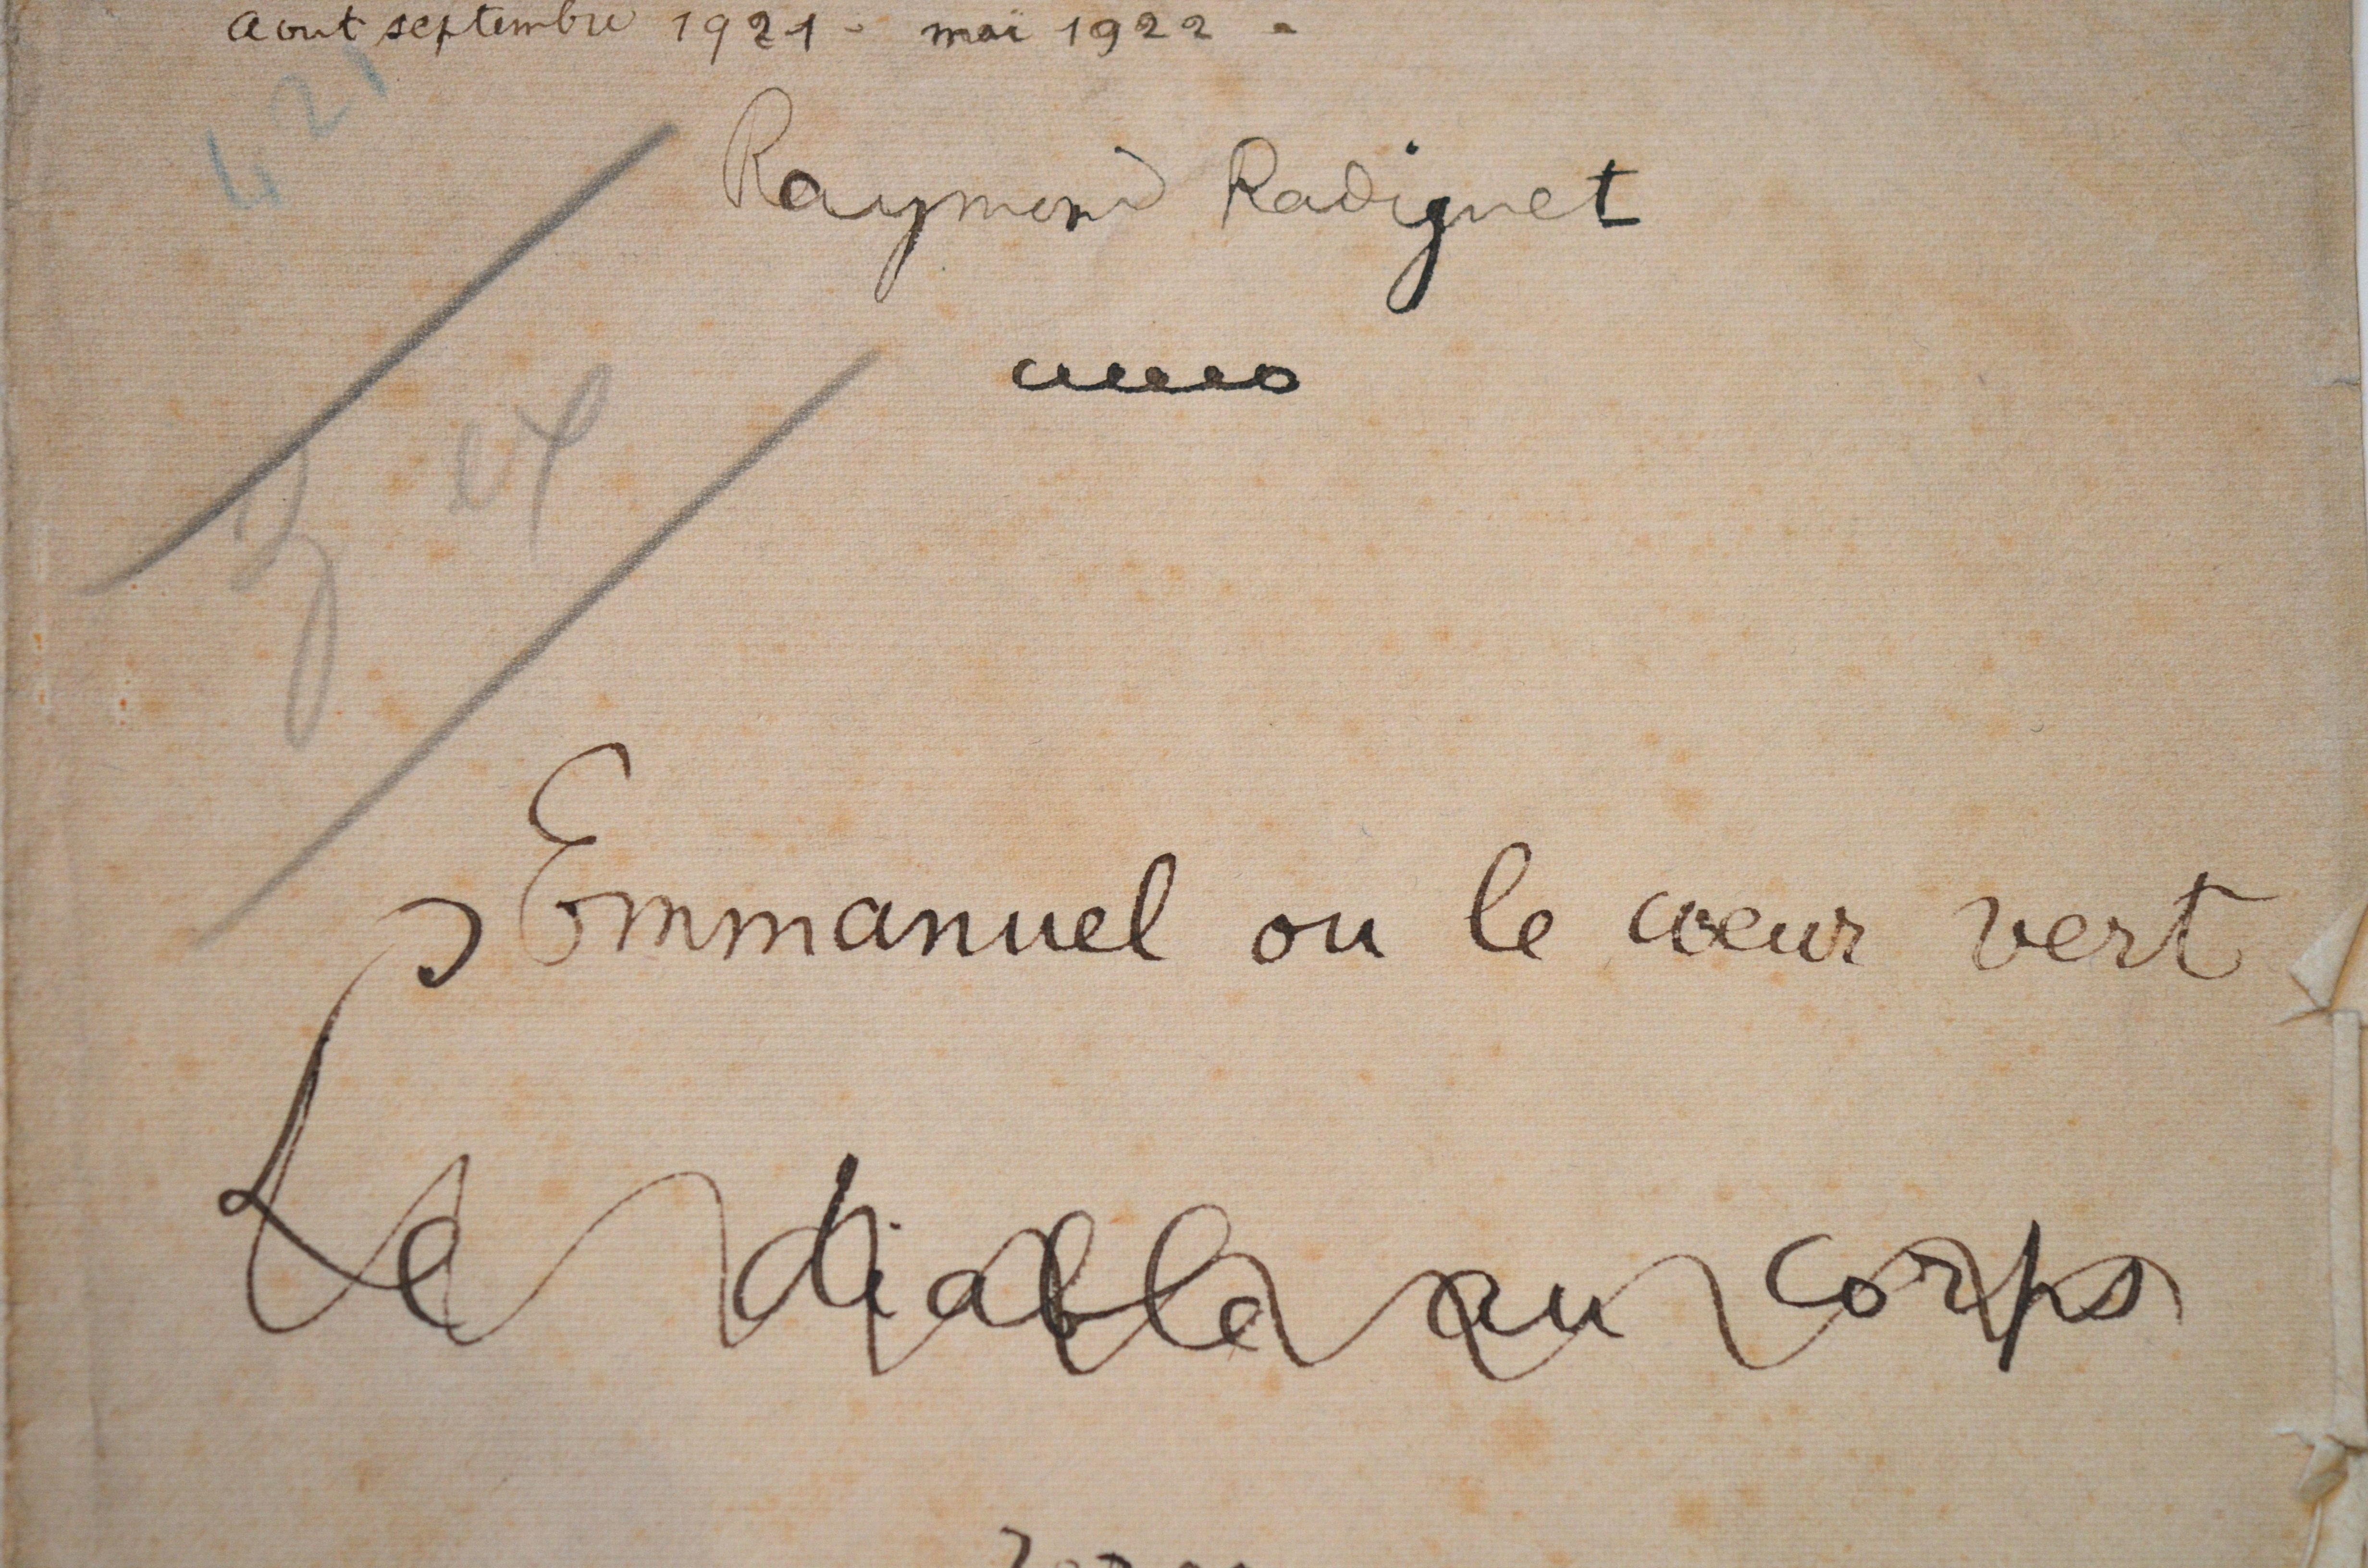 aout septembre 1921 - mai 1922 -
421
Raymond Radiguet
Emmanuel ou le cœur vert
Le diable au corps